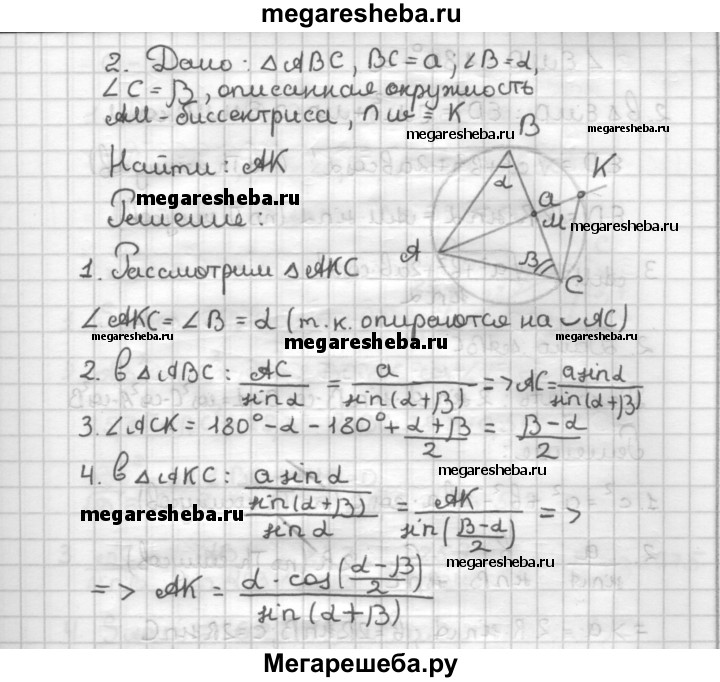 megaresheba.ru
2. Дано: △ABC, BC=a, ∠B=α,
∠C=β, описанная окружность
AM-биссектриса, ∩ w ≡ K
megaresheba.ru
B
Найти: AK
megaresheba.ru
K
α
a
M
megaresheba.ru
Решение:
A
β
C
1. Рассмотрим △AKC
∠AKC=∠B=α (т.к. опираются на ◡AC)
megaresheba.ru
megaresheba.ru
megaresheba.ru
2. В △ABC: AC/sinα = a/sin(α+β) => AC = a sinα/sin(α+β)
3. ∠ACK = 180° - α - 180° + (α+β)/2 = (β-α)/2
megaresheba.ru
4. В △AKC: (a sinα/sin(α+β))/sinα = AK/sin((β-α)/2) =>
megaresheba.ru
megaresheba.ru
=> AK = α · cos((α-β)/2)/sin(α+β)
Мегарешеба.ру